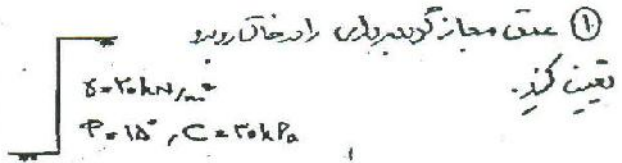 ① عمق مجاز گودبرداری را در خاک روبرو
تعیین کنید.
γ=۲۰kN/m³
φ=۱۵°, C=۲۰kPa